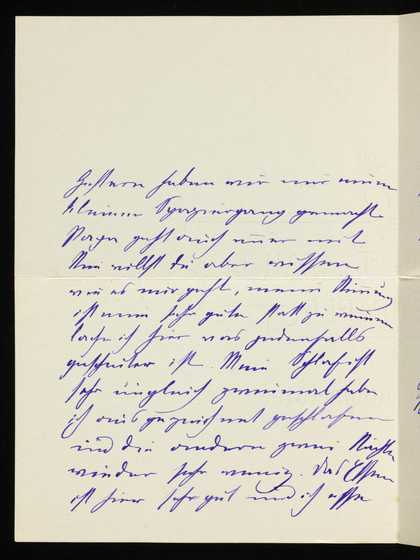 Gestern haben wir nur einen
kleinen Spaziergang gemacht
Papa geht auch immer mit
Nun willst du aber wissen
wie es mir geht, meine Stimmung
ist eine sehr gute statt zu weinen
lache ich hier was jedenfalls
gescheiter ist. Mein Schlaf ist
sehr ungleich zweimal habe
ich ausgezeichnet geschlafen
und die andern zwei Nächte
wieder sehr wenig. Das Essen
ist hier sehr gut und ich esse